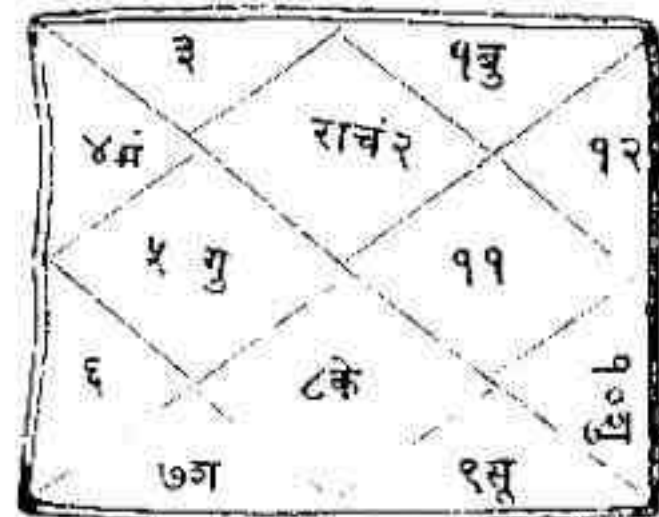 ३ १बु
४मं राचं२ १२
५ गु ११
६ ८के १०
७श ९सू